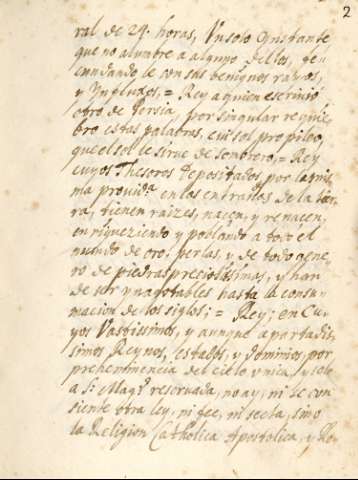 2
ral de 24. horas, Un solo Ynstante,
que no alumbre a alguno dellos, fe-
cundandole con sus benignos raios,
y Ynfluxos, = Rey a quien escriuió
otro de Persia, por singular requie-
bro estas palabras, eui sol pro pileo,
que el sol le sirue de sombrero, = Rey
cuyos Thesoros depositados por la mis-
ma provid.ª en las entrañas de la tier-
ra, tienen raizes, nacen, y renacen,
enriqueziendo y poblando a todo el
mundo de oro, perlas, y de todo gene-
ro de piedras preciosissimas, y han
de ser ynagotables hasta la consu-
macion de los siglos; = Rey; en Cu-
yos Vastissimos, y aunque apartadis-
simos Reynos, estados, y dominios, por
prehemimencia del cielo vnica, y solo
a S. Mag.d reseruada, no ay, ni se con-
siente otra ley, ni fee, ni secta, sino
la Religion Catholica Apostolica, y Ro-